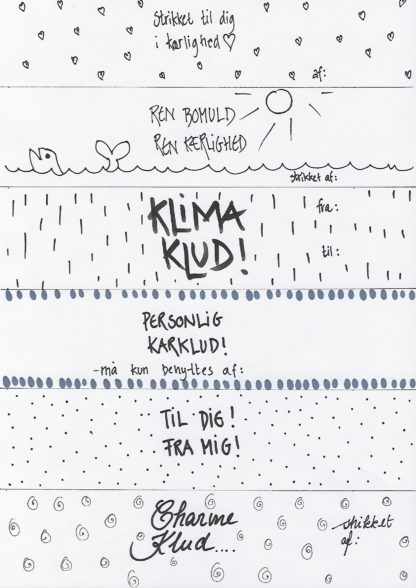 strikket til dig
i kærlighed
af:
REN BOMULD
REN KÆRLIGHED
strikket af:
KLIMA
KLUD!
fra:
til:
PERSONLIG
KARKLUD!
-må kun benyttes af:
TIL DIG!
FRA MIG!
Charme
Klud....
strikket
af: